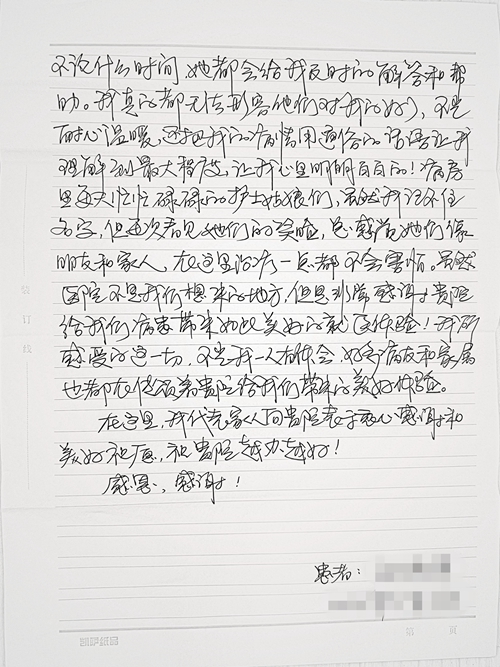 不论什么时间，她都会给我及时的解答和帮
助。我真的都无法形容他们对我的好，不光
耐心温暖，还把我的病情用通俗的话语让我
理解到最大程度，让我心里明明白白的！病房
里每天忙忙碌碌的护士姑娘们，虽然我记不住
名字，但每次看见她们的笑脸，总感觉她们像
朋友和家人，在这里治病一点都不会害怕。虽然
医院不是我们想来的地方，但是非常感谢贵院
给我们病患带来如此美好的就医体验！我所
感受的这一切，不光我一人有体会，好多病友和家属
也都在传颂着贵院给我们带来的美好体验。
在这里，我代表家人向贵院表示衷心感谢和
美好祝愿，祝贵院越办越好！
感恩、感谢！
患者：
装订线
第 页